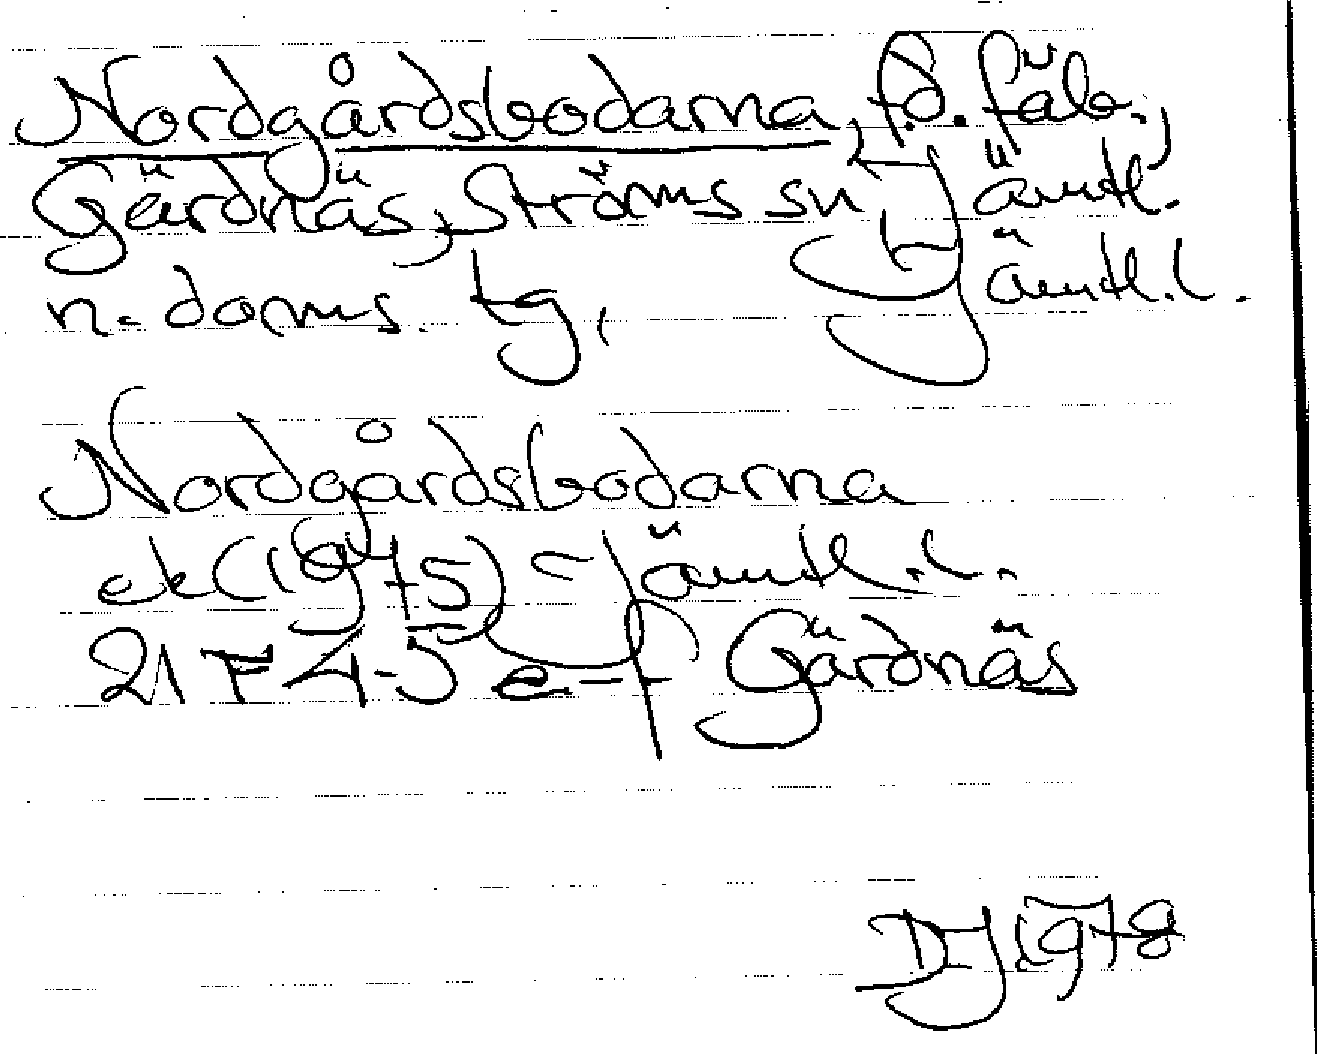 Nordgårdsbodarna, f.d. fäb.,
Gärdnäs, Ströms sn, Jämtl.
n. doms. tg, Jämtl.l.
Nordgårdsbodarna
ek (1975) Jämtl.l.
21 F 4-5 e-f Gärdnäs
DJ 1978